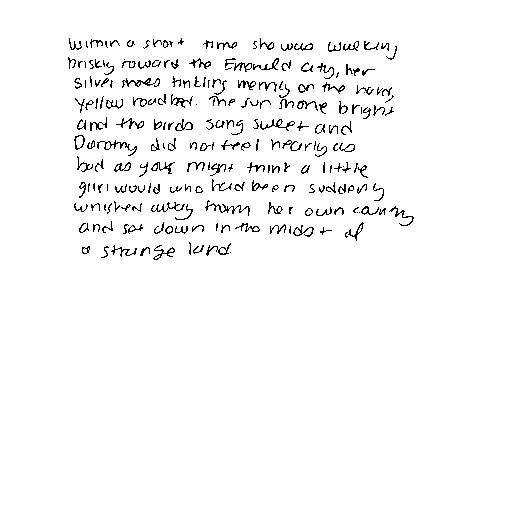 Within a short time she was walking
briskly toward the Emerald City, her
Silver shoes tinkling merrily on the hard,
yellow roadbed. The sun shone bright
and the birds sang sweet and
Dorothy did not feel nearly as
bad as you might think a little
girl would who had been suddenly
whisked away from her own country
and set down in the midst of
a strange land